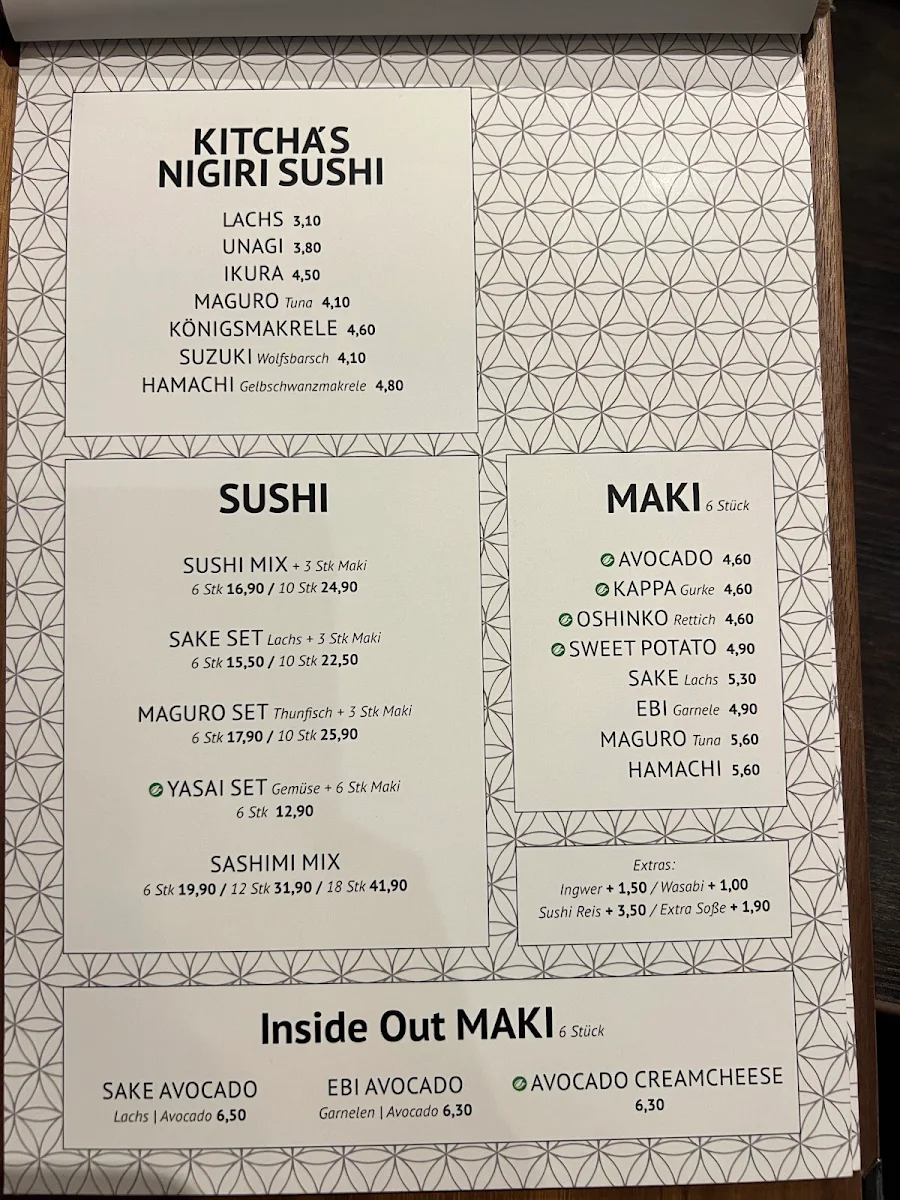 KITCHA´S
NIGIRI SUSHI
LACHS 3,10
UNAGI 3,80
IKURA 4,50
MAGURO Tuna 4,10
KÖNIGSMAKRELE 4,60
SUZUKI Wolfsbarsch 4,10
HAMACHI Gelbschwanzmakrele 4,80
SUSHI
SUSHI MIX + 3 Stk Maki
6 Stk 16,90 / 10 Stk 24,90
SAKE SET Lachs + 3 Stk Maki
6 Stk 15,50 / 10 Stk 22,50
MAGURO SET Thunfisch + 3 Stk Maki
6 Stk 17,90 / 10 Stk 25,90
YASAI SET Gemüse + 6 Stk Maki
6 Stk 12,90
SASHIMI MIX
6 Stk 19,90 / 12 Stk 31,90 / 18 Stk 41,90
MAKI 6 Stück
AVOCADO 4,60
KAPPA Gurke 4,60
OSHINKO Rettich 4,60
SWEET POTATO 4,90
SAKE Lachs 5,30
EBI Garnele 4,90
MAGURO Tuna 5,60
HAMACHI 5,60
Extras:
Ingwer + 1,50 / Wasabi + 1,00
Sushi Reis + 3,50 / Extra Soße + 1,90
Inside Out MAKI 6 Stück
SAKE AVOCADO
Lachs | Avocado 6,50
EBI AVOCADO
Garnelen | Avocado 6,30
AVOCADO CREAMCHEESE
6,30